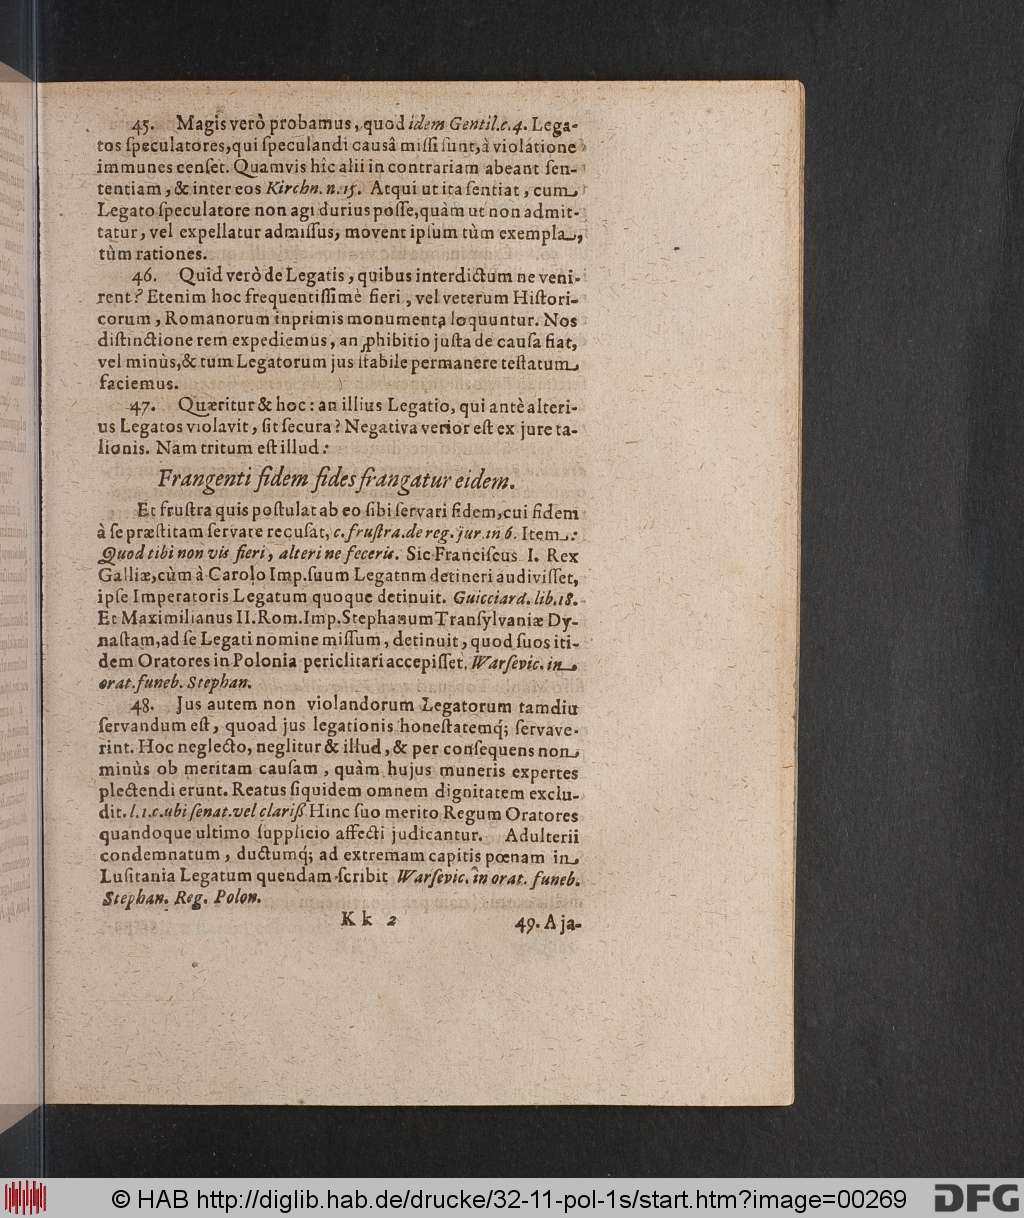 45. Magis verò probamus, quod idem Gentil.c.4. Lega-
tos ſpeculatores,qui ſpeculandi causâ miſſi ſunt,à violatione
immunes cenſet. Quamvis hic alii in contrariam abeant ſen-
tentiam, & inter eos Kirchn. n.15. Atqui ut ita ſentiat, cum
Legato ſpeculatore non agi durius poſſe,quàm ut non admit-
tatur, vel expellatur admiſſus, movent ipſum tùm exempla,
tùm rationes.
46. Quid verò de Legatis, quibus interdictum ne veni-
rent? Etenim hoc frequentiſſimè fieri, vel veterum Hiſtori-
corum, Romanorum inprimis monumenta loquuntur. Nos
diſtinctione rem expediemus, an ꝓhibitio juſta de cauſa fiat,
vel minùs,& tum Legatorum jus ſtabile permanere teſtatum
faciemus.
47. Quæritur & hoc: an illius Legatio, qui antè alteri-
us Legatos violavit, ſit ſecura? Negativa verior eſt ex jure ta-
lionis. Nam tritum eſt illud:
Frangenti fidem fides frangatur eidem.
Et fruſtra quis poſtulat ab eo ſibi ſervari fidem,cui fidem
à ſe præſtitam ſervare recuſat, c.fruſtra.de reg.jur.in 6. Item:
Quod tibi non vis fieri, alteri ne feceris. Sic Franciſcus I. Rex
Galliæ,cùm à Carolo Imp.ſuum Legatum detineri audiviſſet,
ipſe Imperatoris Legatum quoque detinuit. Guicciard.lib.18.
Et Maximilianus II.Rom.Imp.Stephanum Tranſylvaniæ Dy-
naſtam,ad ſe Legati nomine miſſum, detinuit, quod ſuos iti-
dem Oratores in Polonia periclitari accepiſſet. Warſevic. in
orat.funeb. Stephan.
48. Jus autem non violandorum Legatorum tamdiu
ſervandum eſt, quoad jus legationis honeſtatemq́; ſervave-
rint. Hoc neglecto, neglitur & illud, & per conſequens non
minùs ob meritam cauſam, quàm hujus muneris expertes
plectendi erunt. Reatus ſiquidem omnem dignitatem exclu-
dit. l.1.c.ubi ſenat.vel clariß Hinc ſuo merito Regum Oratores
quandoque ultimo ſupplicio affecti judicantur. Adulterii
condemnatum, ductumq́; ad extremam capitis pœnam in
Luſitania Legatum quendam ſcribit Warſevic. in orat. funeb.
Stephan. Reg. Polon.
Kk 2
49. A ja-
© HAB http://diglib.hab.de/drucke/32-11-pol-1s/start.htm?image=00269
DFG